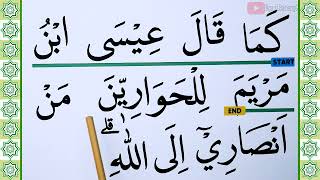 كَمَا قَالَ عِيْسَى ابْنُ
START
مَرْيَمَ لِلْحَوَارِيّٖنَ مَنْ
END
اَنْصَارِيْٓ اِلَى اللّٰهِ ؕ